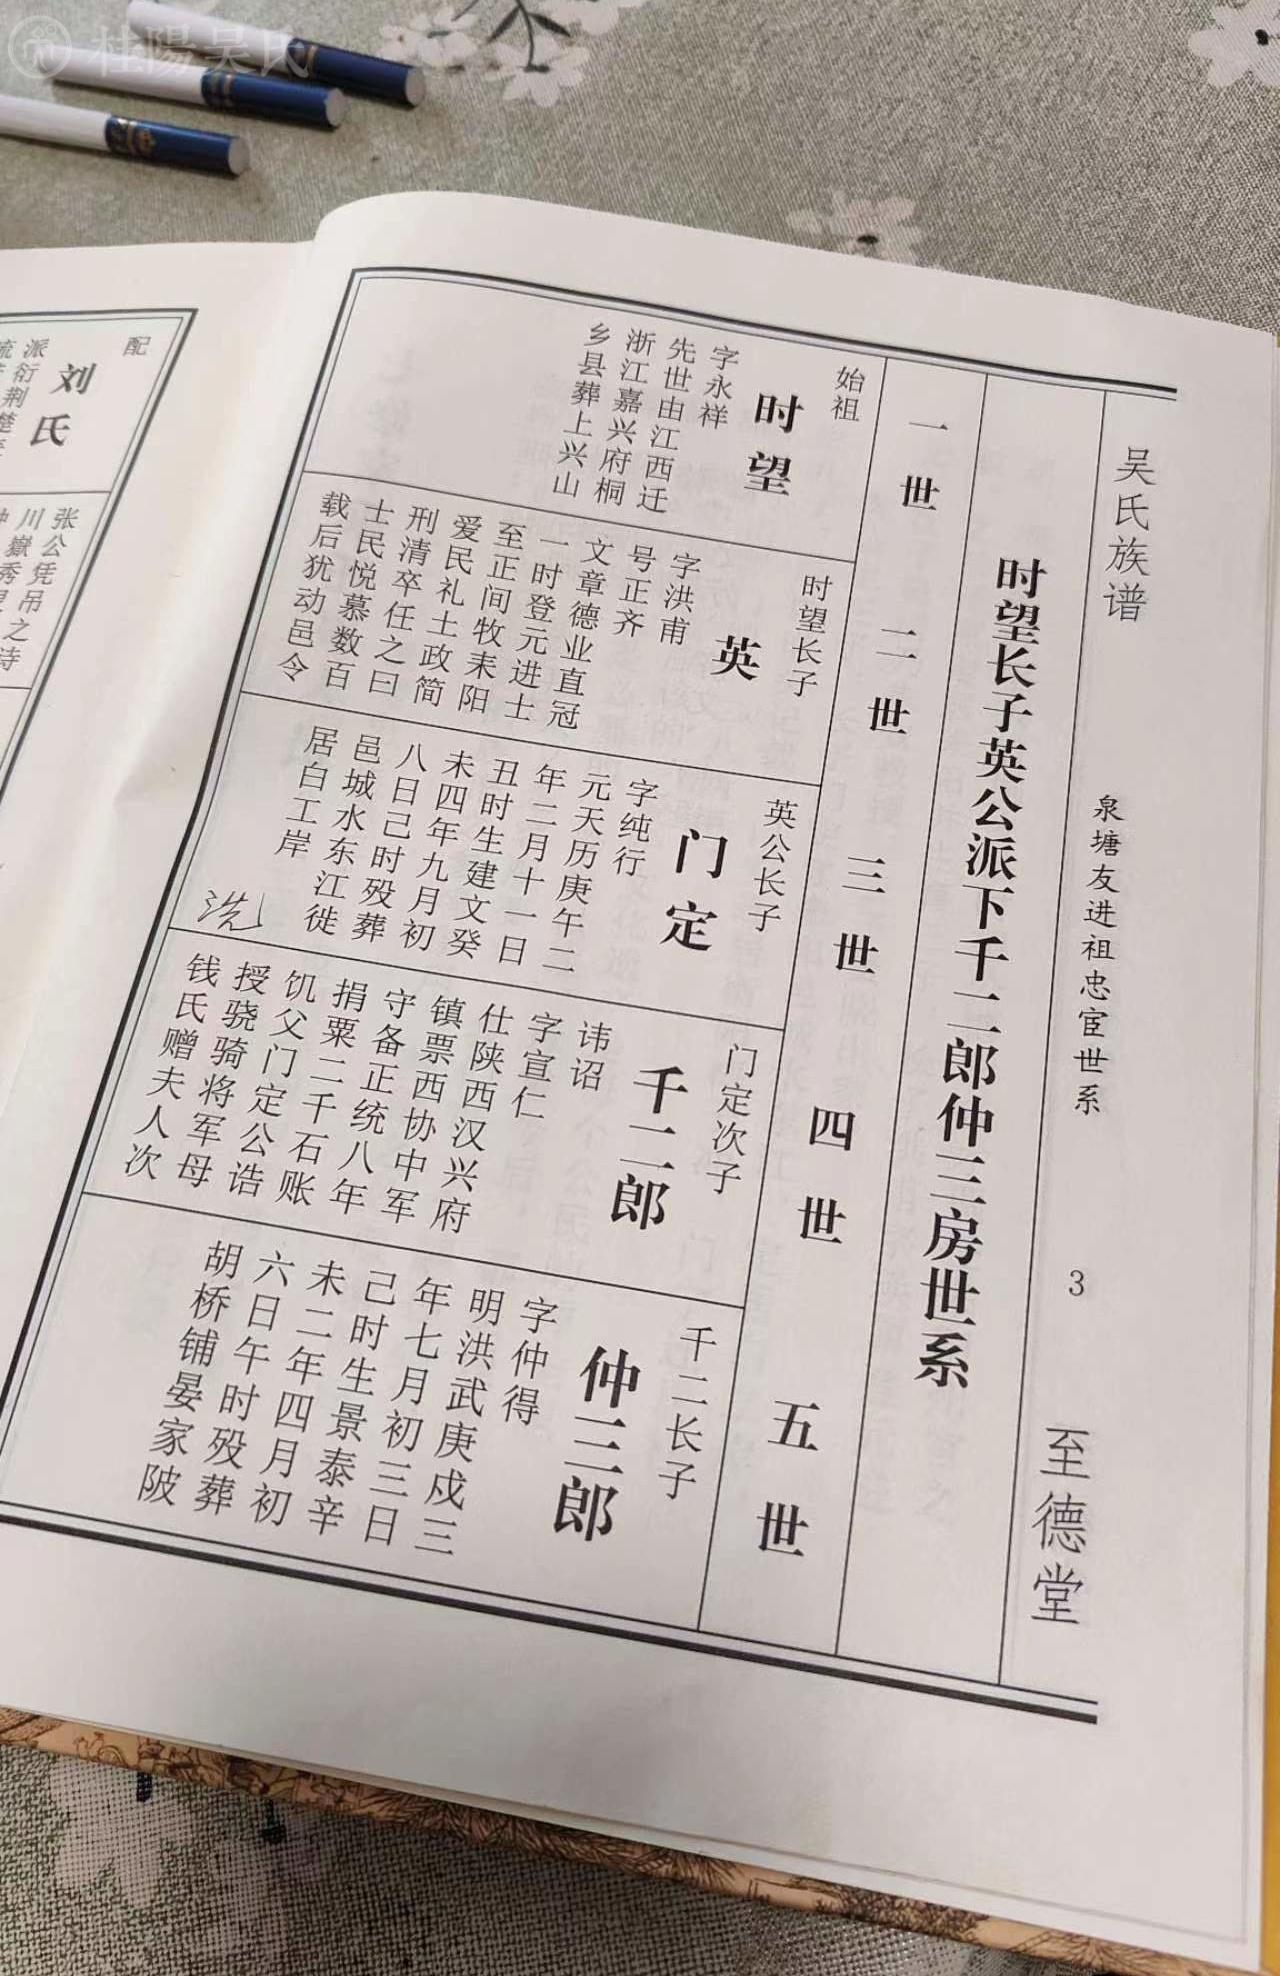 桂陽吴氏
吴氏族谱
泉塘友进祖忠宦世系
3
至德堂
时望长子英公派下千二郎仲三房世系
一世
二世
三世
四世
五世
始祖
时望
字永祥
先世由江西迁
浙江嘉兴府桐
乡县葬上兴山
时望长子
英
字洪甫
号正齐
文章德业直冠
一时登元进士
至正间牧耒阳
爱民礼士政简
刑清卒任之曰
士民悦慕数百
载后犹动邑令
英公长子
门定
字纯行
元天历庚午二
年二月十一日
丑时生建文癸
未四年九月初
八日己时殁葬
邑城水东江徙
居白工岸
洗
门定次子
千二郎
讳诏
字宣仁
仕陕西汉兴府
镇票西协中军
守备正统八年
捐粟二千石账
饥父门定公诰
授骁骑将军母
钱氏赠夫人次
千二长子
仲三郎
字仲得
明洪武庚戍三
年七月初三日
己时生景泰辛
未二年四月初
六日午时殁葬
胡桥铺晏家陂
配
刘氏
派衍荆楚
张公凭吊之诗
川嶽秀